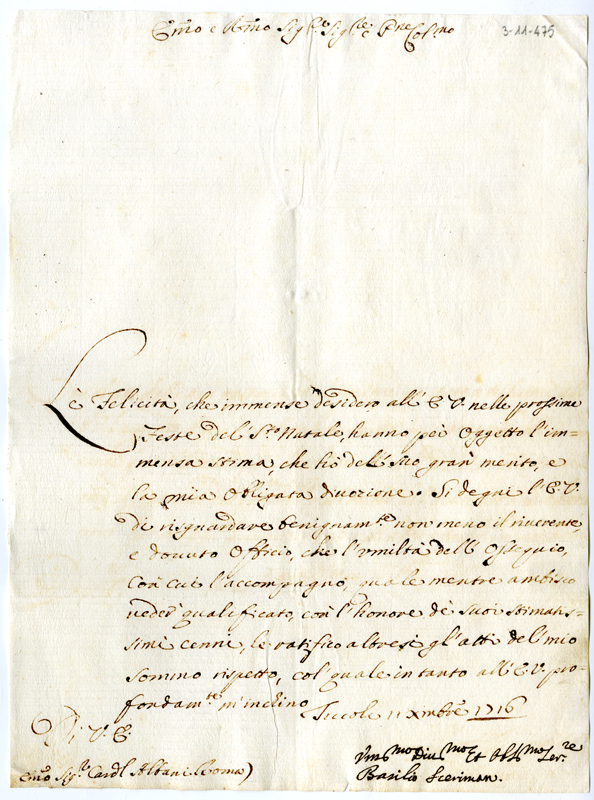 Em̃o e Rm̃o Sig.re Sig.re e Pne Col.mo
3-11-475
Lè Felicità, che immense desidero all' E V. nelle prossime
Feste del S.to Natale, hanno per Oggetto l'im=
mensa stima, che hò dell Suo gran merito, e
la mia obligata divozione. Si degni l'E. V.
di risguardare benignam.te non meno il riverente,
e dovuto Officio, che l'vmiltà dell Ossequio,
con cui l'accompagno, quale mentre ambisco
veder qualificato, con l'honore de suoi stimatis=
simi cenni, le ratifico altresi gl'atti del mio
somino rispetto, col quale in tanto all' E. V. pro=
fondam.te m'inchino
Ficcole 11 Xmbre 1716
Di V. E.
Vm̃s.mo Diu.mo et Obl.mo Ser.re
Basilio Sceriman.
Em̃o Sig.re Card.l Albani (Roma)